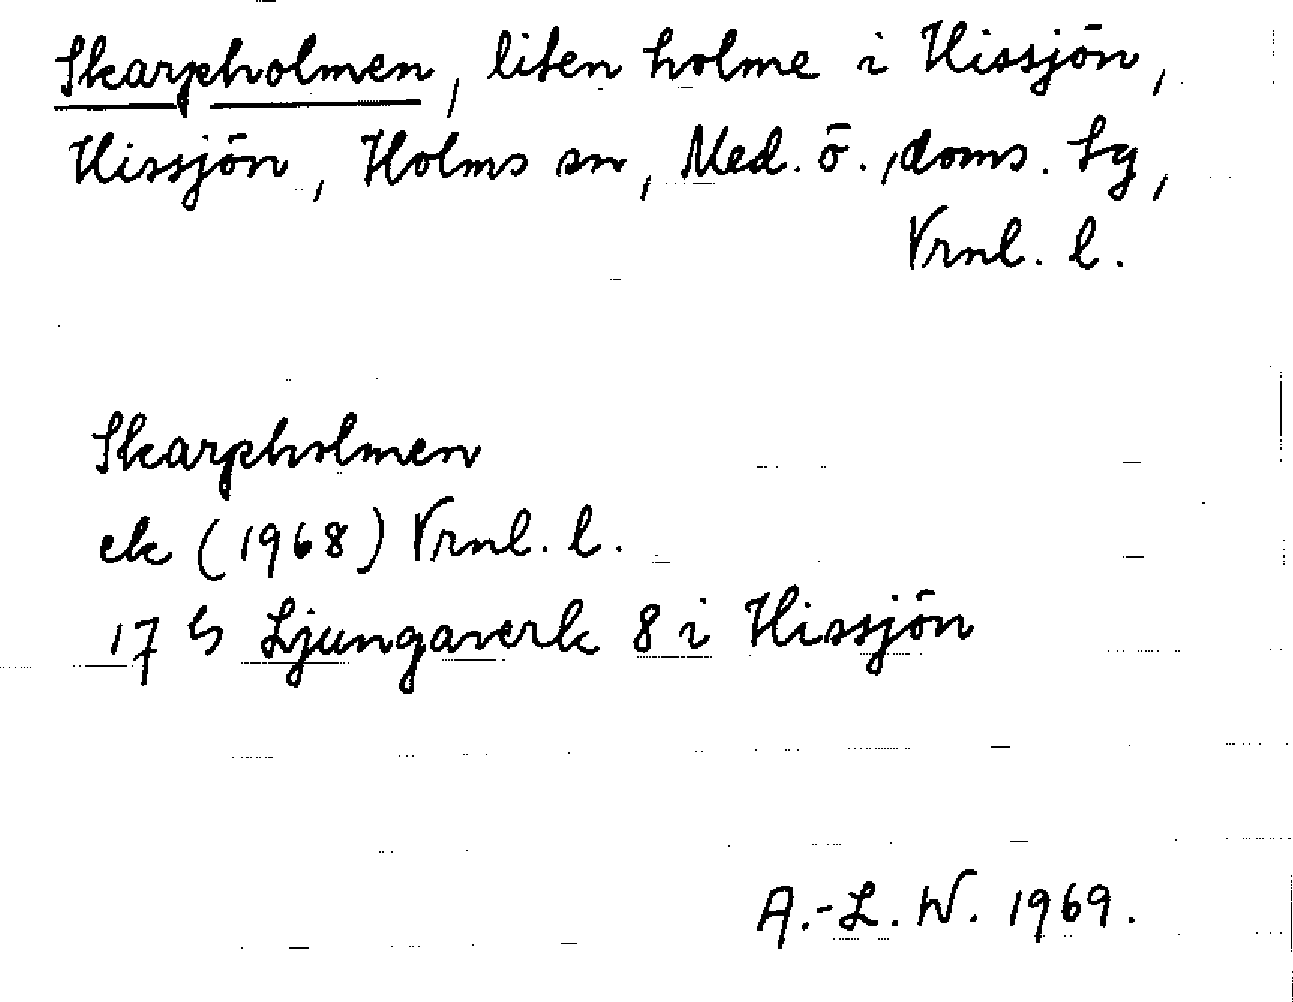 Skarpholmen, liten holme i Hissjön,
Hissjön, Holms sn, Med. ö. doms. tg,
Vrnl. l.
Skarpholmen
ek (1968) Vrnl. l.
17 G Ljungaverk 8 i Hissjön
A.-L. W. 1969.